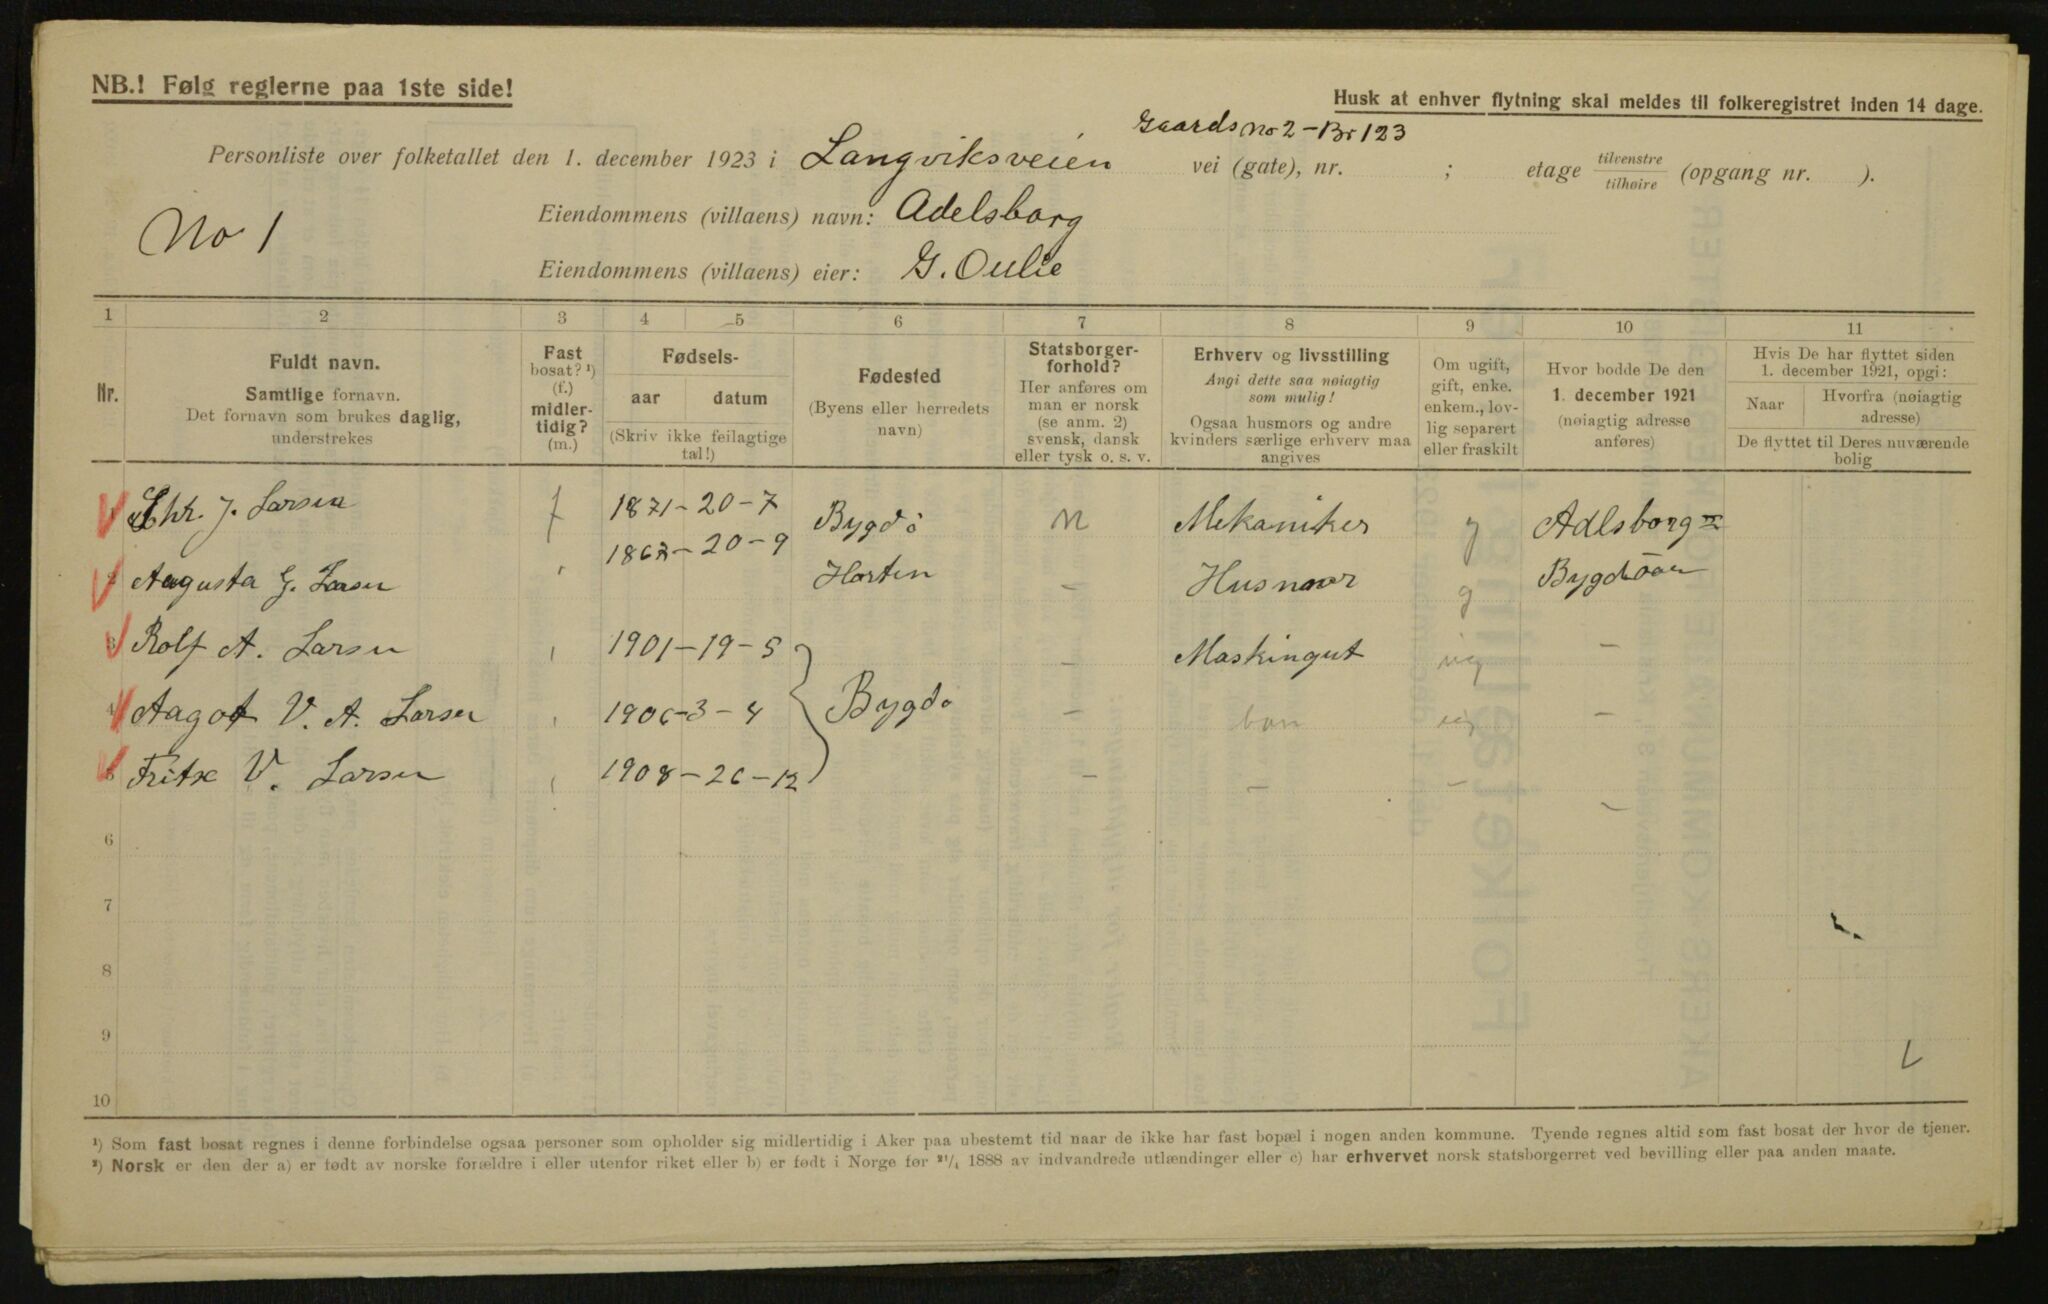 NB.! Følg reglerne paa 1ste side!
Husk at enhver flytning skal meldes til folkeregistret inden 14 dage.
Gaards No 2 - Br 123
Personliste over folketallet den 1. december 1923 i Langviksveien vei (gate), nr. ; etage tilvenstre tilhøire (opgang nr. ).
No 1
Eiendommens (villaens) navn: Adelsborg
Eiendommens (villaens) eier: G. Oulie
1 2 3 4 5 6 7 8 9 10 11
Nr.
Fuldt navn.
Samtlige fornavn.
Det fornavn som brukes daglig,
understrekes
Fast
bosat? ¹)
(f.)
midler-
tidig?
(m.)
Fødsels-
aar datum
(Skriv ikke feilagtige
tal!)
Fødested
(Byens eller herredets
navn)
Statsborger-
forhold?
Her anføres om
man er norsk
(se anm. 2)
svensk, dansk
eller tysk o. s. v.
Erhverv og livsstilling
Angi dette saa nøiagtig
som mulig!
Ogsaa husmors og andre
kvinders særlige erhverv maa
angives
Om ugift,
gift, enke.
enkem., lov-
lig separert
eller fraskilt
Hvor bodde De den
1. december 1921
(nøiagtig adresse
anføres)
Hvis De har flyttet siden
1. december 1921, opgi:
Naar
Hvorfra (nøiagtig
adresse)
De flyttet til Deres nuværende
bolig
Chr. J. Larsen f 1871 - 20 - 7 Bygdö n Mekaniker g Adlsborg
2 Augusta G. Larsen 20 - 9 Horten - Husmor g Bygdöen
3 Rolf A. Larsen 1901 - 19 - 5 - Maskingut ug -
4 Aagot V. A. Larsen 1906 - 3 - 4 Bygdö - barn ug -
5 Fritz V. Larsen 1908 - 26 - 12 - - - -
6
7
8
9
10
¹) Som fast bosat regnes i denne forbindelse ogsaa personer som opholder sig midlertidig i Aker paa ubestemt tid naar de ikke har fast bopæl i nogen anden kommune. Tyende regnes altid som fast bosat der hvor de tjener.
²) Norsk er den der a) er født av norske forældre i eller utenfor riket eller b) er født i Norge før ²¹/₄ 1888 av indvandrede utlændinger eller c) har erhvervet norsk statsborgerret ved bevilling eller paa anden maate.